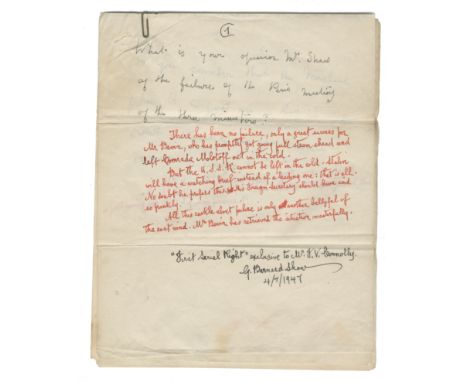 1
What is your opinion Mr. Shaw
of the failure of the Paris meeting
of the three ministers?
There has been no failure, only a great success for
Mr Bevin, who has promptly got going full steam ahead and
left Comrade Molotoff out in the cold.
But the U.S.S.R. cannot be left in the cold. Stalin
will have a watching brief instead of a leading one: that is all.
No doubt he prefers this. Foreign Secretary should have said
so frankly.
All this cackle about failure is only another bellyful of
the east wind. Mr Bevin has retrieved the situation masterfully.
"First Serial Right" exclusive to Mr. F. V. Connolly.
G. Bernard Shaw
4/7/1947